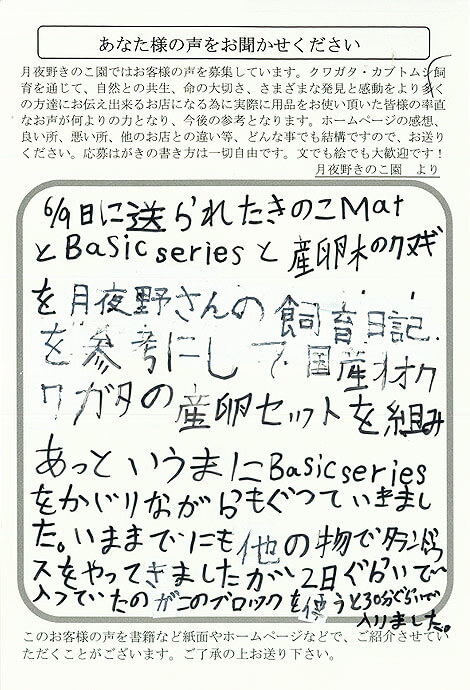 あなた様の声をお聞かせください
月夜野きのこ園ではお客様の声を募集しています。クワガタ・カブトムシ飼
育を通じて、自然との共生、命の大切さ、さまざまな発見と感動をより多く
の方達にお伝え出来るお店になる為に実際に用品をお使い頂いた皆様の率直
なお声が何よりの力となり、今後の参考となります。ホームページの感想、
良い所、悪い所、他のお店との違い等、どんな事でも結構ですので、お送り
ください。応募はがきの書き方は一切自由です。文でも絵でも大歓迎です！
月夜野きのこ園　より
6/9日に送られたきのこMat
とBasic seriesと産卵木のクヌギ
を月夜野さんの飼育日記
を参考にして国産オオク
ワガタの産卵セットを組み
あっというまにBasic series
をかじりながらもぐっていきまし
た。いままでにも他の物でタランドゥ
スをやってきましたが2日ぐらいで
入っていたのがこのブロックを使うと30分ぐらいで
入りました。
このお客様の声を書籍など紙面やホームページなどで、ご紹介させてい
ただくことがございます。ご了承の上お送り下さい。